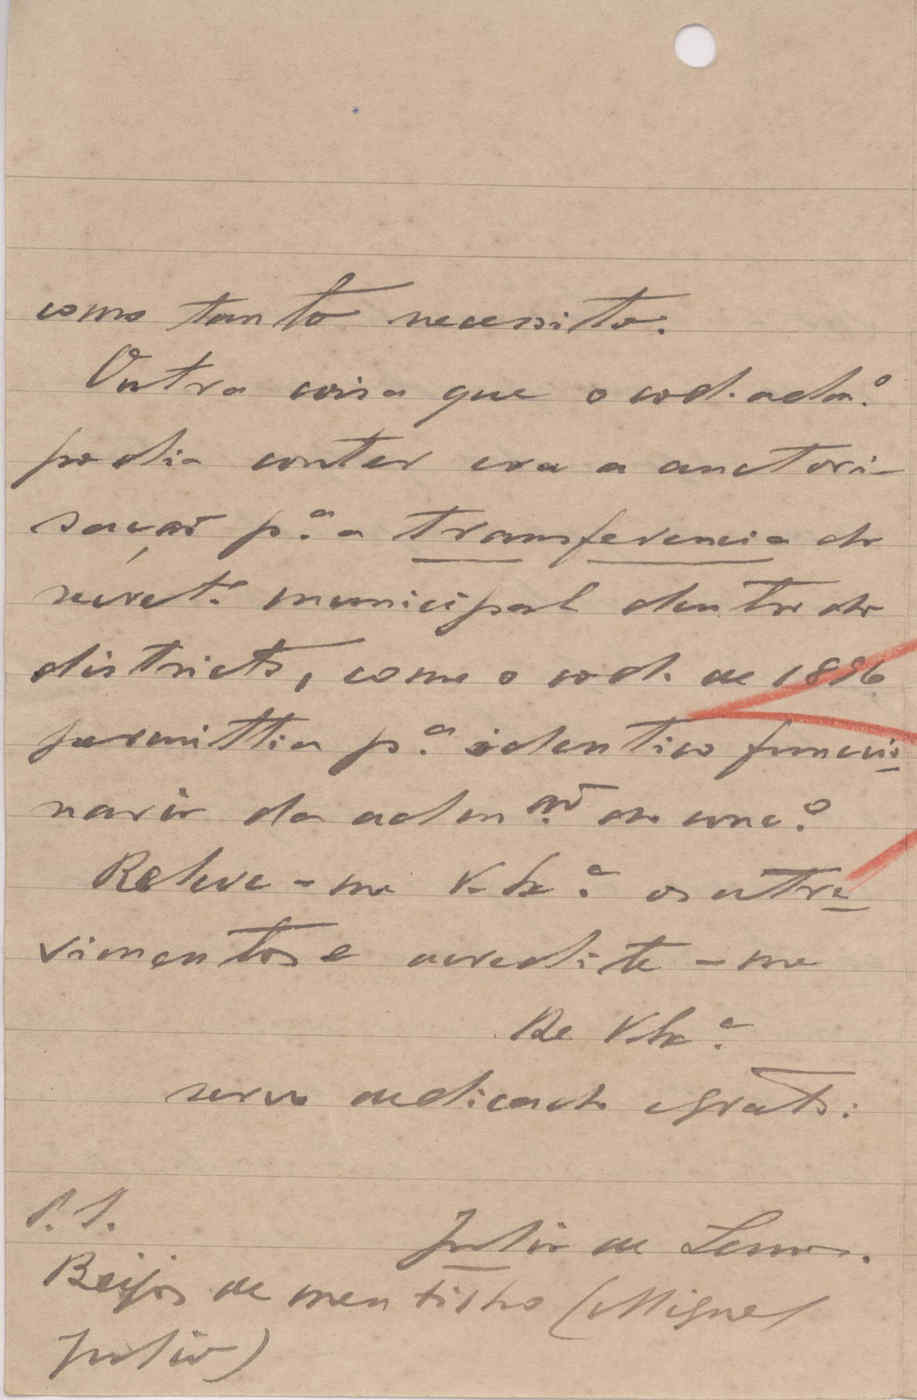 como tanto necessito.
Outra coisa que o cod. adm.º
podia conter era a auctori-
sação p.ª a transferencia do
secret.º municipal dentro do
districto, como o cod. de 1886
permittia p.ª identico funccio
nario da adm.ão do conc.º
Releve-me V. Ex.ª os atre
vimentos e acredite-me
De V. Ex.ª
servo dedicado e grato:
P.S.
Julio de Lemos.
Beijos de meu filho (Miguel
Julio)